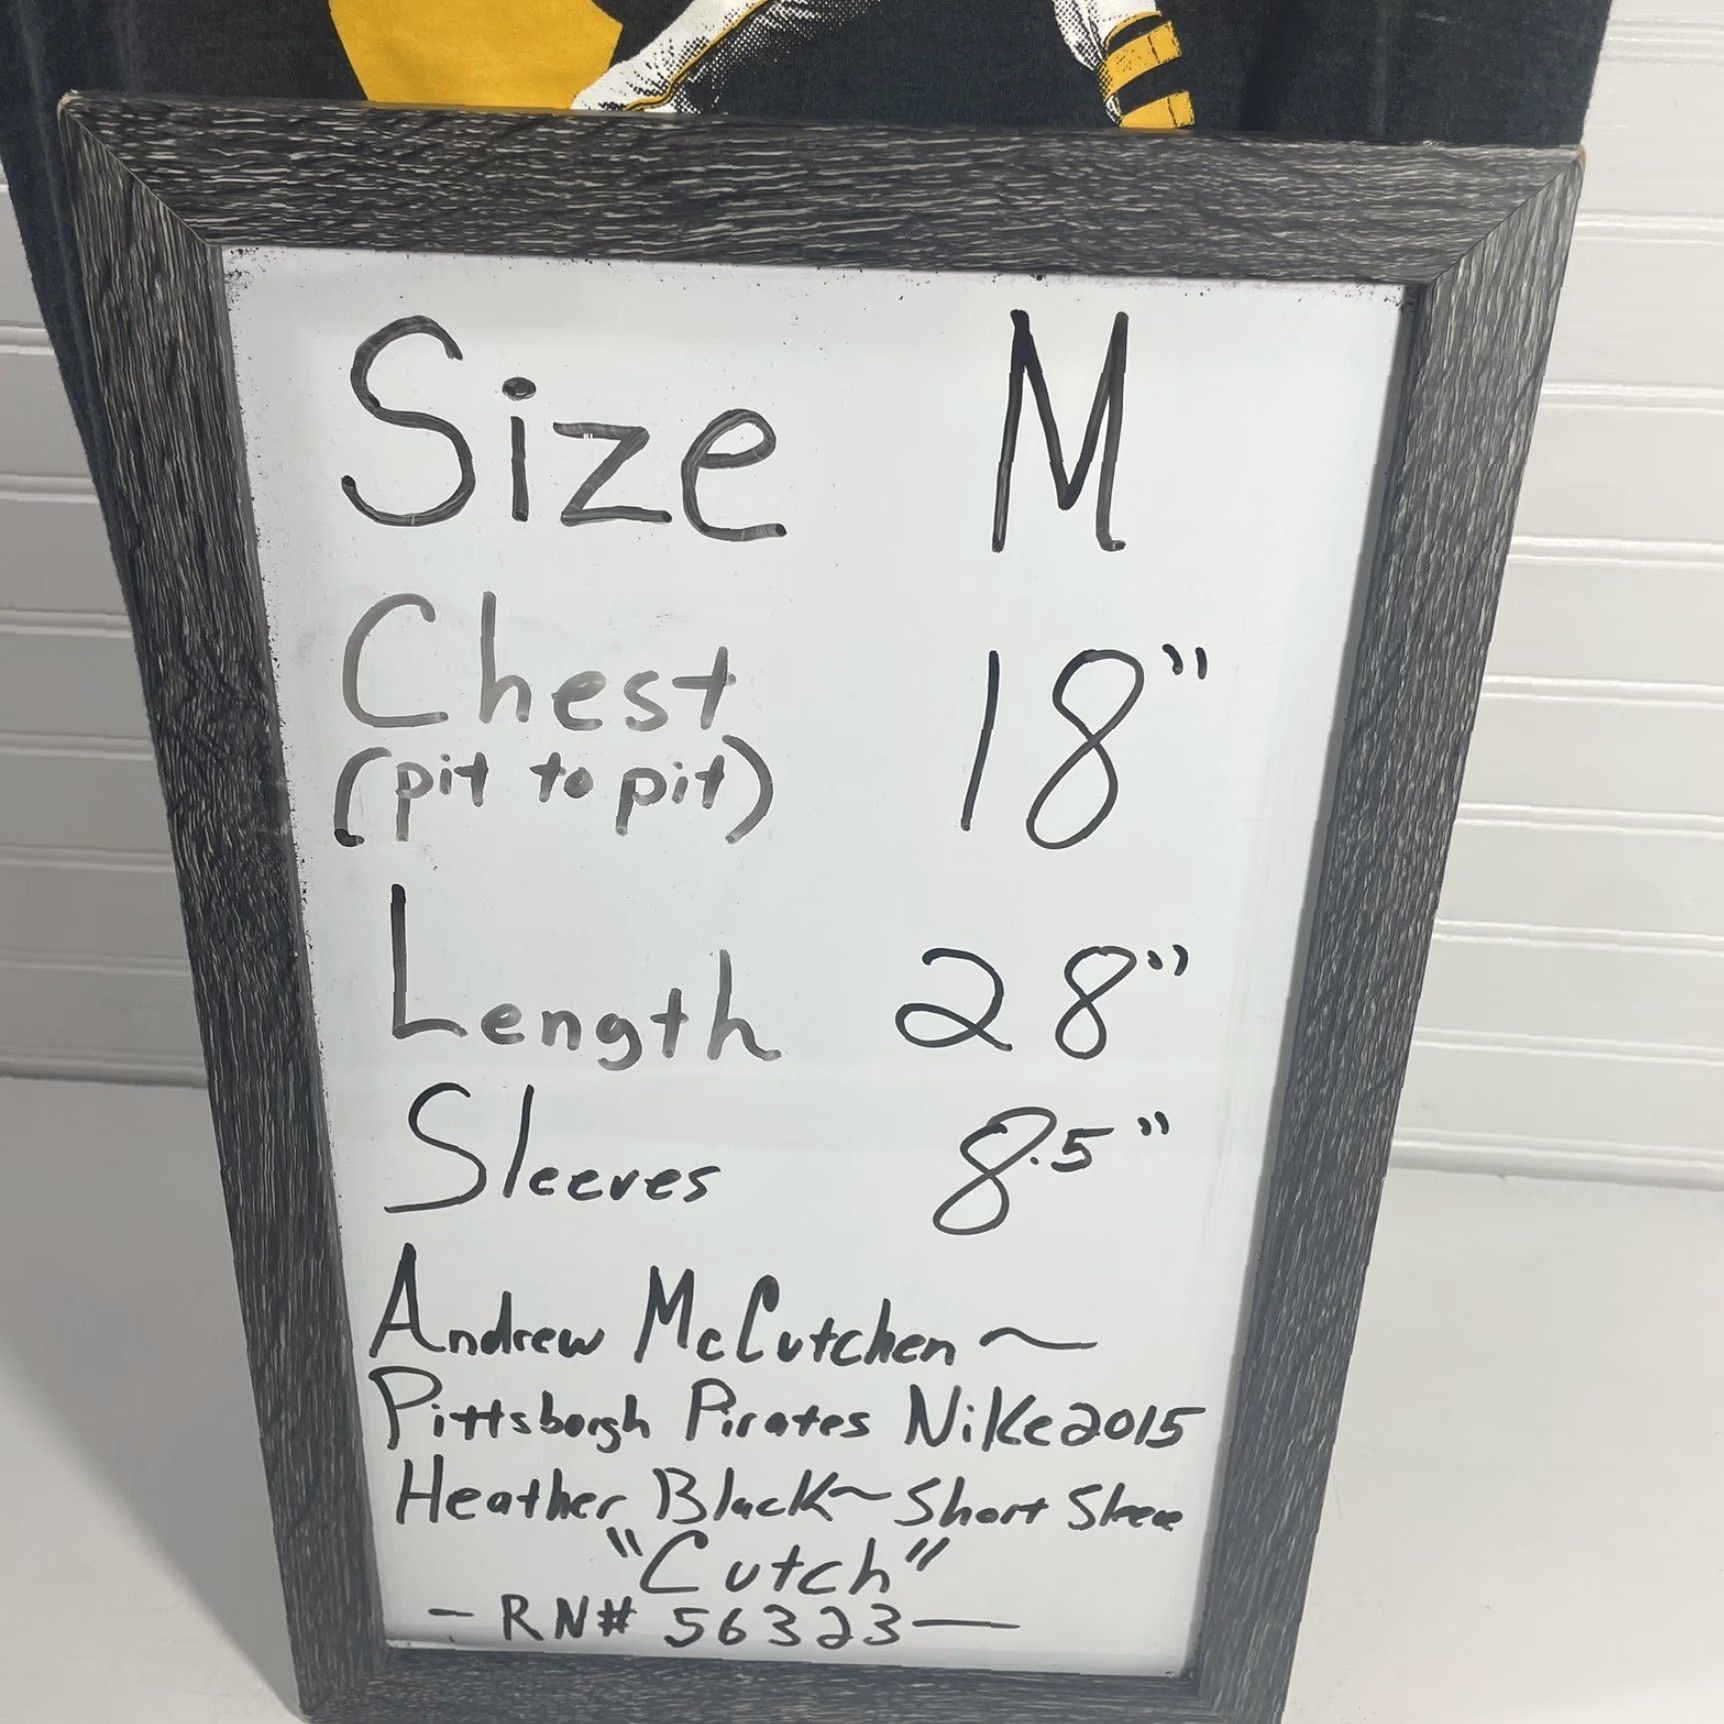 Size M
Chest 18"
(pit to pit)
Length 28"
Sleeves 8.5"
Andrew McCutchen ~
Pittsburgh Pirates Nike 2015
Heather Black ~ Short Sleeve
"Cutch"
- RN# 56323 -